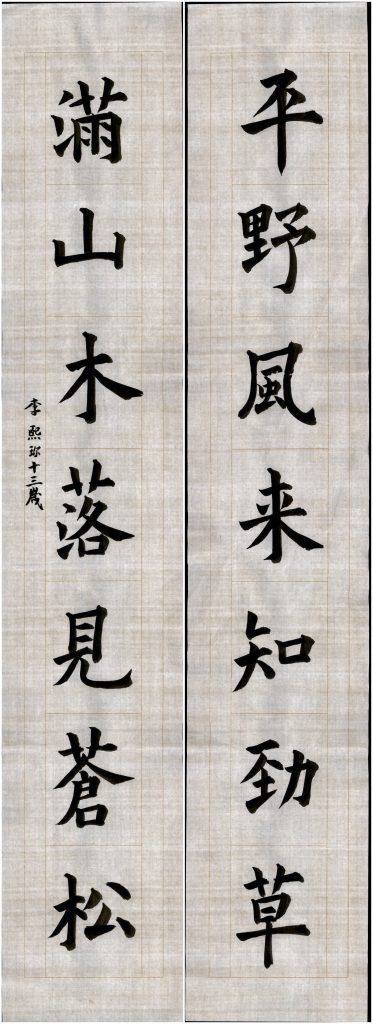 平野風来知勁草
滿山木落見蒼松
李熙珎十三歲